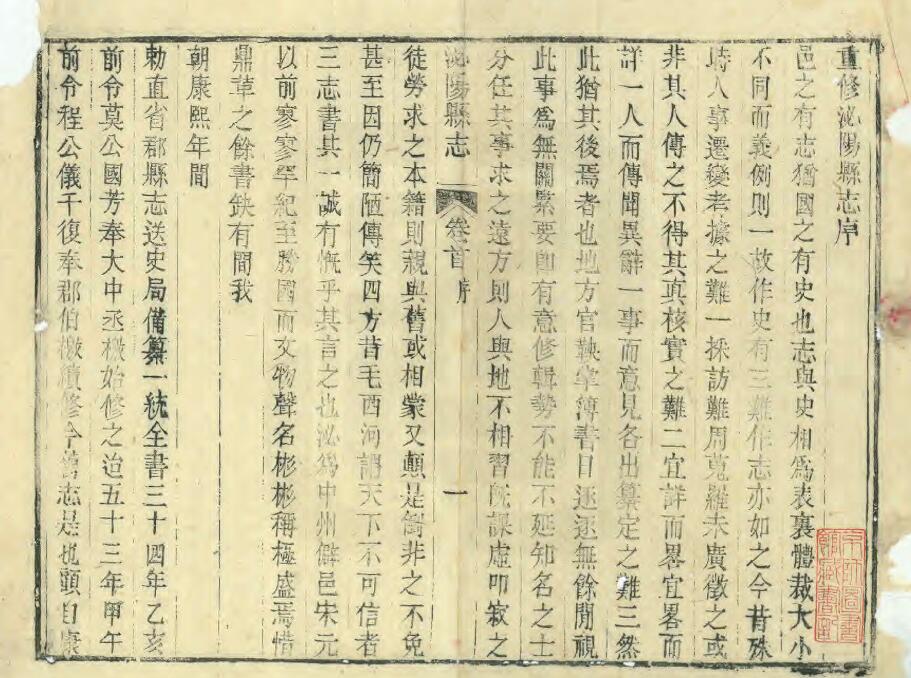 重修泌陽縣志序
邑之有志猶國之有史也志與史相爲表裏體裁大小
不同而義例則一故作史有三難作志亦如之今昔殊
時人事遷變考據之難一採訪難周蒐羅未廣徵之或
非其人傳之不得其真核實之難二宜詳而畧宜畧而
詳一人而傳聞異辭一事而意見各出纂定之難三然
此猶其後焉者也地方官鞅掌簿書日逐逐無餘閒視
此事爲無關緊要即有意修輯勢不能不延知名之士
分任其事求之遠方則人與地不相習旣課虛叩寂之
泌陽縣志 卷首 序 一
徒勞求之本籍則親與舊或相蒙又顛是倒非之不免
甚至因仍簡陋傳笑四方昔毛西河謂天下不可信者
三志書其一誠有慨乎其言之也泌爲中州僻邑宋元
以前寥寥罕紀至勝國而文物聲名彬彬稱極盛焉惜
鼎革之餘書缺有間我
朝康熙年間
勅直省郡縣志送史局備纂一統全書三十四年乙亥
前令莫公國芳奉大中丞檄始修之迨五十三年甲午
前令程公儀千復奉郡伯檄續修今舊志是也顧自康